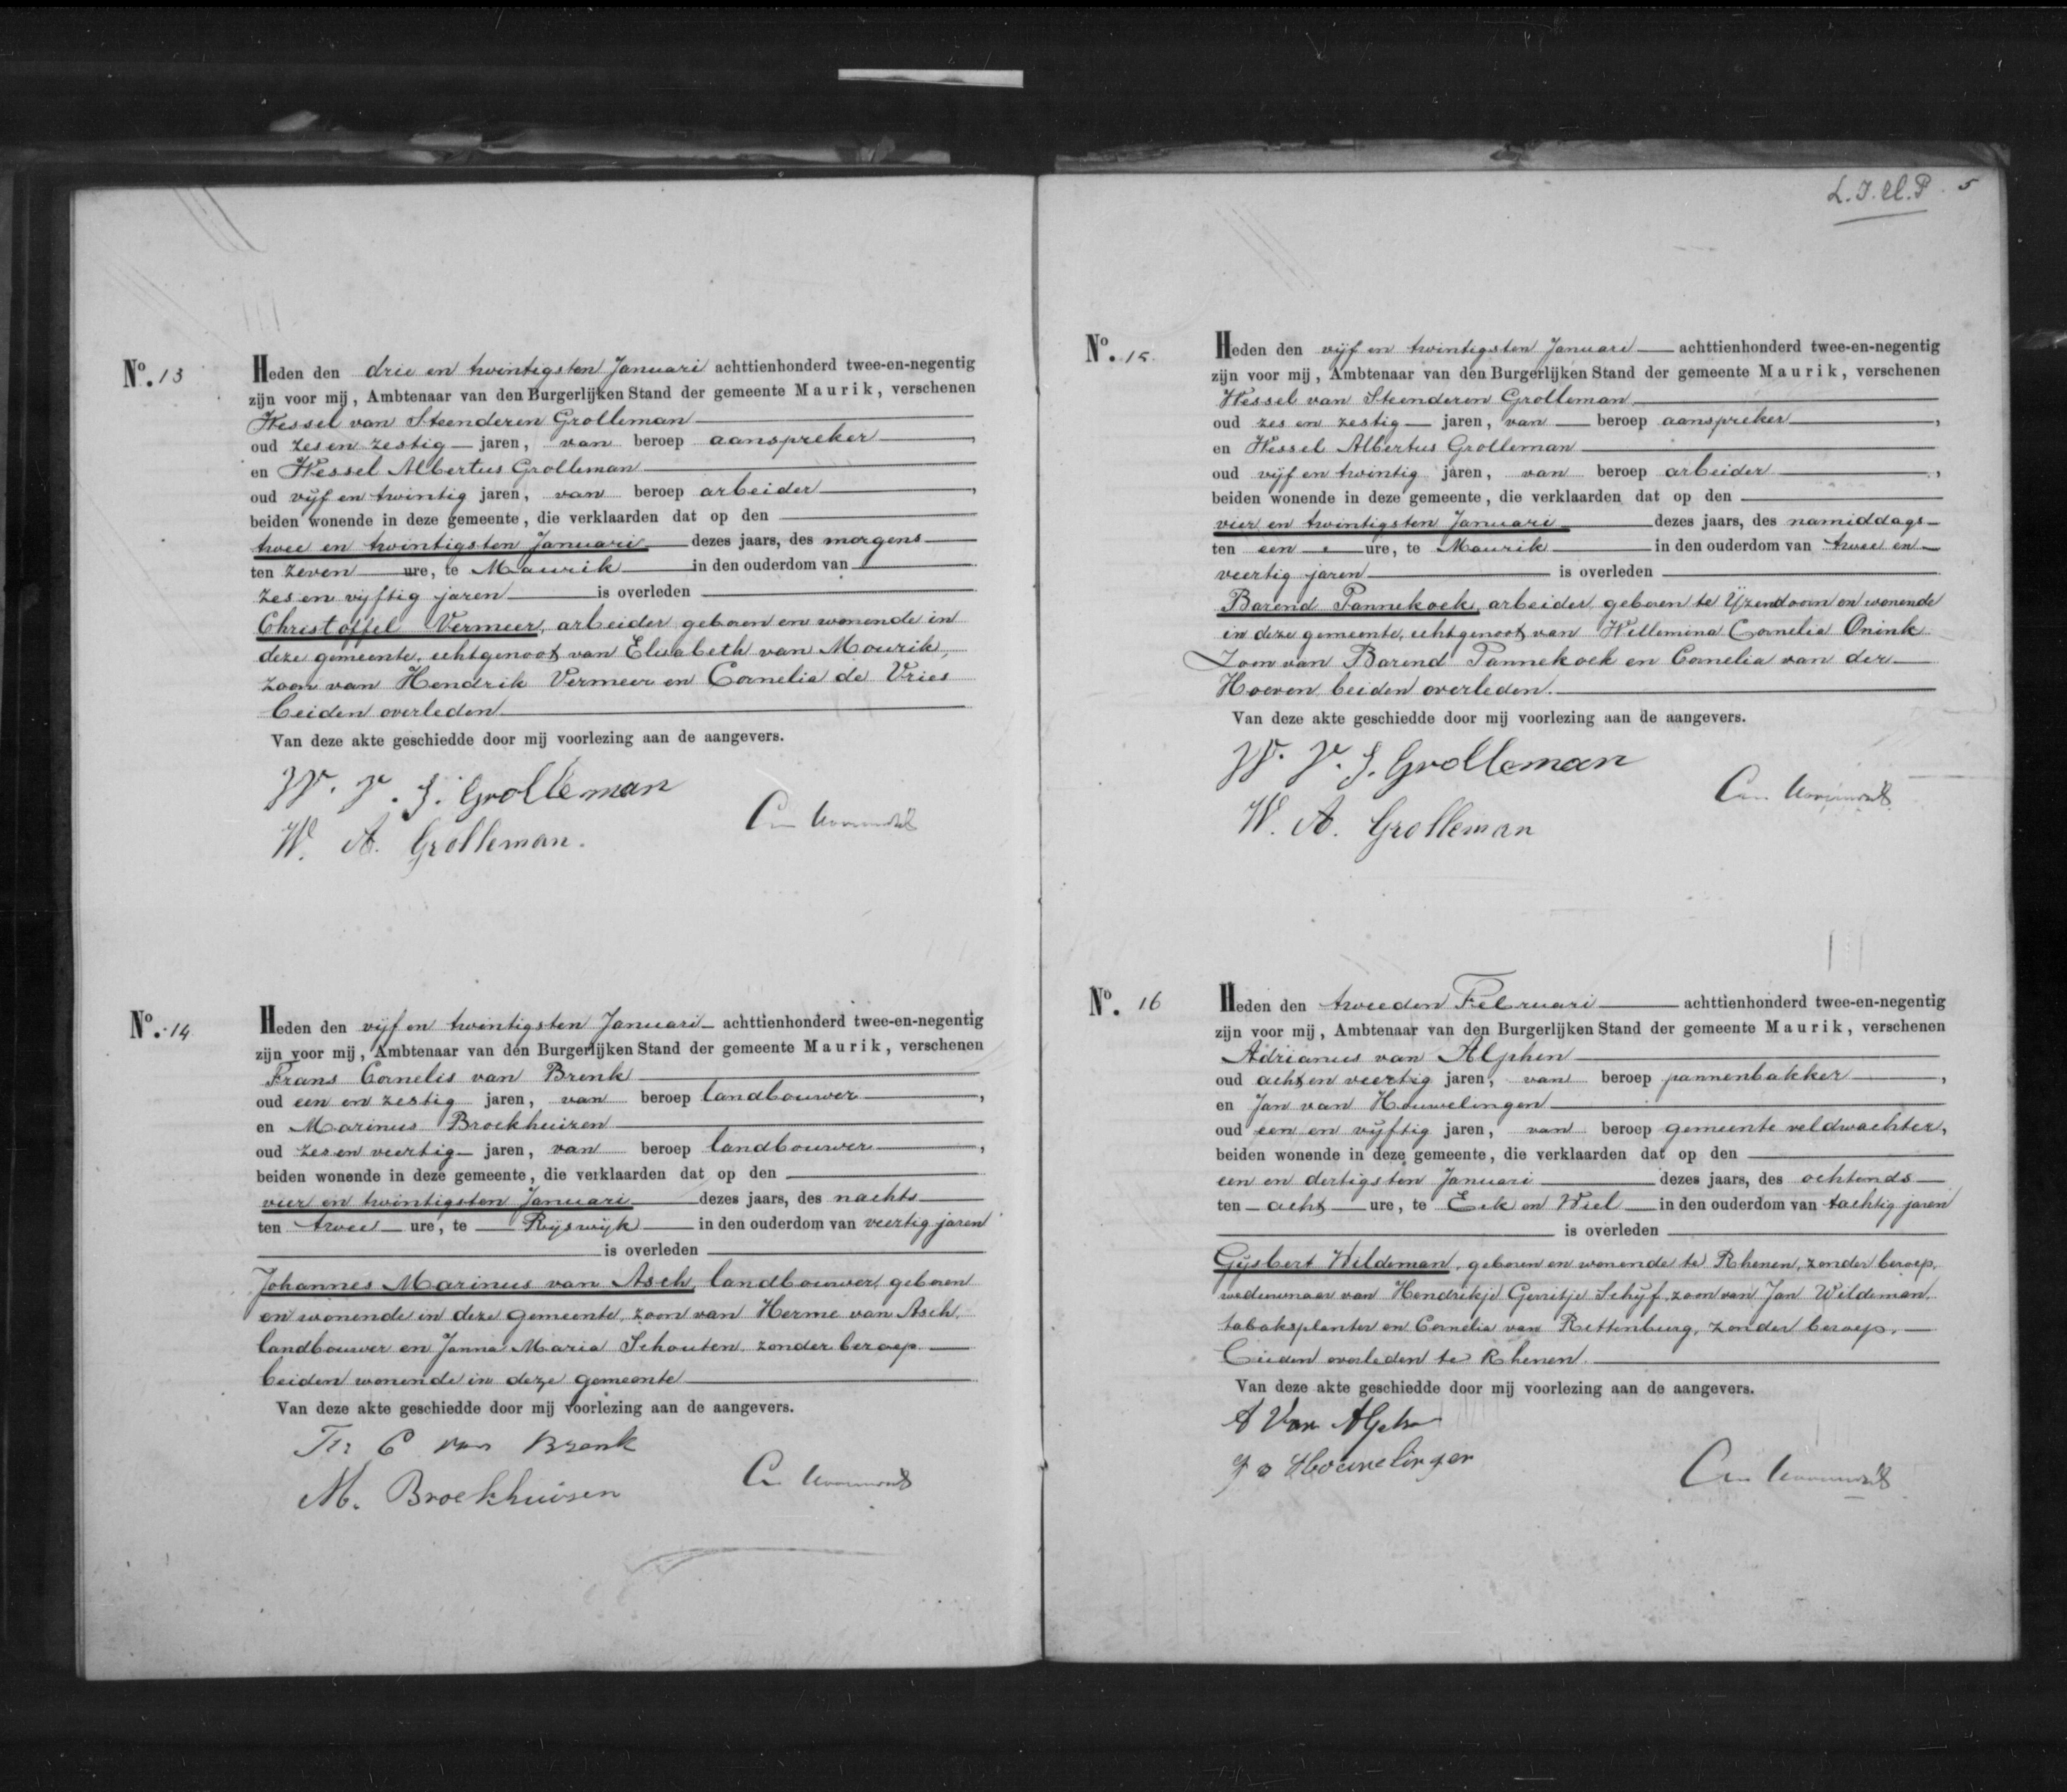 No. 13
Heden den drie en twintigsten Januari achttienhonderd twee-en-negentig
zijn voor mij, Ambtenaar van den Burgerlijken Stand der gemeente Maurik, verschenen
Wessel van Steenderen Grolleman
oud zes en zestig jaren, van beroep aanspreker,
en Wessel Albertus Grolleman
oud vijf en twintig jaren, van beroep arbeider,
beiden wonende in deze gemeente, die verklaarden dat op den
twee en twintigsten Januari dezes jaars, des morgens
ten zeven ure, te Maurik in den ouderdom van
zes en vijftig jaren is overleden
Christoffel Vermeer, arbeider, geboren en wonende in
deze gemeente, echtgenoot van Elisabeth van Mourik,
zoon van Hendrik Vermeer en Cornelia de Vries
beiden overleden.
Van deze akte geschiedde door mij voorlezing aan de aangevers.
W. V. S. Grolleman
W. A. Grolleman.
No. 14
Heden den vijf en twintigsten Januari achttienhonderd twee-en-negentig
zijn voor mij, Ambtenaar van den Burgerlijken Stand der gemeente Maurik, verschenen
Frans Cornelis van Brenk
oud een en zestig jaren, van beroep landbouwer,
en Marinus Broekhuizen
oud zes en veertig jaren, van beroep landbouwer,
beiden wonende in deze gemeente, die verklaarden dat op den
vier en twintigsten Januari dezes jaars, des nachts
ten twee ure, te Rijswijk in den ouderdom van veertig jaren
is overleden
Johannes Marinus van Asch, landbouwer, geboren
en wonende in deze gemeente, zoon van Herme van Asch,
landbouwer en Janna Maria Schouten, zonder beroep
beiden wonende in deze gemeente
Van deze akte geschiedde door mij voorlezing aan de aangevers.
Fr C van Brenk
M. Broekhuisen
L.I.M.P. 5
No. 15.
Heden den vijf en twintigsten Januari achttienhonderd twee-en-negentig
zijn voor mij, Ambtenaar van den Burgerlijken Stand der gemeente Maurik, verschenen
Wessel van Steenderen Grolleman
oud zes en zestig jaren, van beroep aanspreker,
en Wessel Albertus Grolleman
oud vijf en twintig jaren, van beroep arbeider,
beiden wonende in deze gemeente, die verklaarden dat op den
vier en twintigsten Januari dezes jaars, des namiddags
ten een ure, te Maurik in den ouderdom van twee en
veertig jaren is overleden
Barend Pannekoek, arbeider, geboren te Yzendoorn en wonende
in deze gemeente, echtgenoot van Willemina Cornelia Onink
Zoon van Barend Pannekoek en Cornelia van der
Hoeven, beiden overleden.
Van deze akte geschiedde door mij voorlezing aan de aangevers.
W. V. S. Grolleman
W. A. Grolleman
No. 16
Heden den tweeden Februari achttienhonderd twee-en-negentig
zijn voor mij, Ambtenaar van den Burgerlijken Stand der gemeente Maurik, verschenen
Adrianus van Alphen
oud acht en veertig jaren, van beroep pannenbakker,
en Jan van Houwelingen
oud een en vijftig jaren, van beroep gemeente veldwachter,
beiden wonende in deze gemeente, die verklaarden dat op den
een en dertigsten Januari dezes jaars, des ochtends
ten acht ure, te Eck en Wiel in den ouderdom van tachtig jaren
is overleden
Gijsbert Wildeman, geboren en wonende te Rhenen, zonder beroep,
weduwnaar van Hendrikje Gerritje Schijf, zoon van Jan Wildeman,
tabaksplanter en Cornelia van Rettenburg, zonder beroep,
beiden overleden te Rhenen.
Van deze akte geschiedde door mij voorlezing aan de aangevers.
A Van Alphen
J v Houwelingen